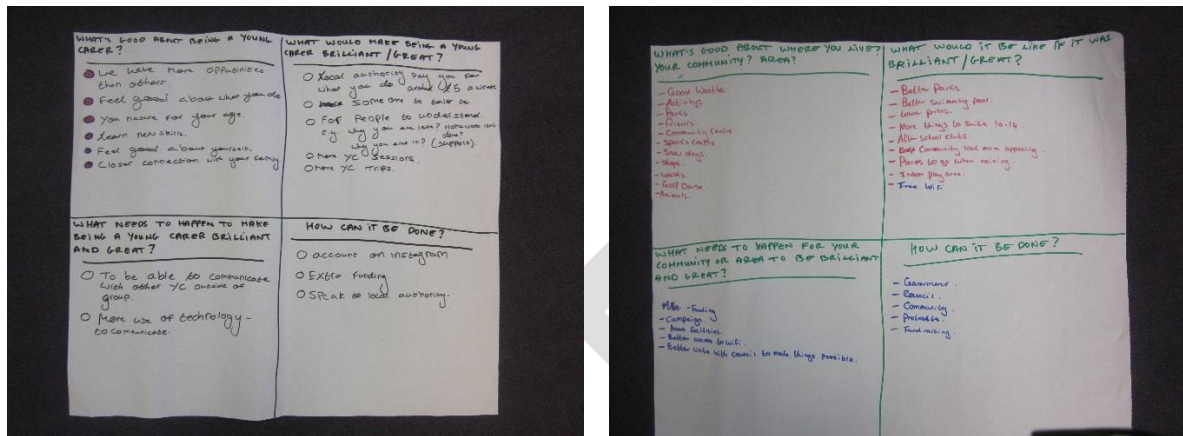 WHAT'S GOOD ABOUT BEING A YOUNG
CARER?
We have more oppounities
than others.
Feel good about what you do
You mature for your age.
Learn new skills.
Feel good about yourself.
Closer connection with your family
WHAT WOULD MAKE BEING A YOUNG
CARER BRILLIANT/GREAT?
Local authority pay you for
what you do around £5 a week
Someone to talk to.
For People to understand.
e.g. why you are late? Homework not
done?
why you are in? (support).
More YC Sessions.
More YC Trips.
WHAT NEEDS TO HAPPEN TO MAKE
BEING A YOUNG CARER BRILLIANT
AND GREAT?
To be able to communicate
with other YC outside of
group.
More use of technology -
to comunicate.
HOW CAN IT BE DONE?
account on instagram
Extra Funding
Speak to local authority.
WHAT'S GOOD ABOUT WHERE YOU LIVE?
YOUR COMMUNITY? AREA?
- Good Weather
- Activitys.
- Parks.
- Friends.
- Community Centre
- Sports centre
- Snow days.
- shops.
- walks.
- Golf Course
- Animals.
WHAT WOULD IT BE LIKE IF IT WAS
BRILLIANT/GREAT?
- Better Parks.
- Better swimming pool.
- lower prices.
- More things to suite 10-14.
- After school clubs.
- Community look more appealing.
- Places to go when raining
- Indoor play area.
- Free WiFi
WHAT NEEDS TO HAPPEN FOR YOUR
COMMUNITY OR AREA TO BE BRILLIANT
AND GREAT?
- Funding
- Campaign.
- More facilities.
- Better access to wifi.
- Better links with council to make things possible.
HOW CAN IT BE DONE?
- Government.
- Council.
- Community.
- Protests.
- Fundraising.